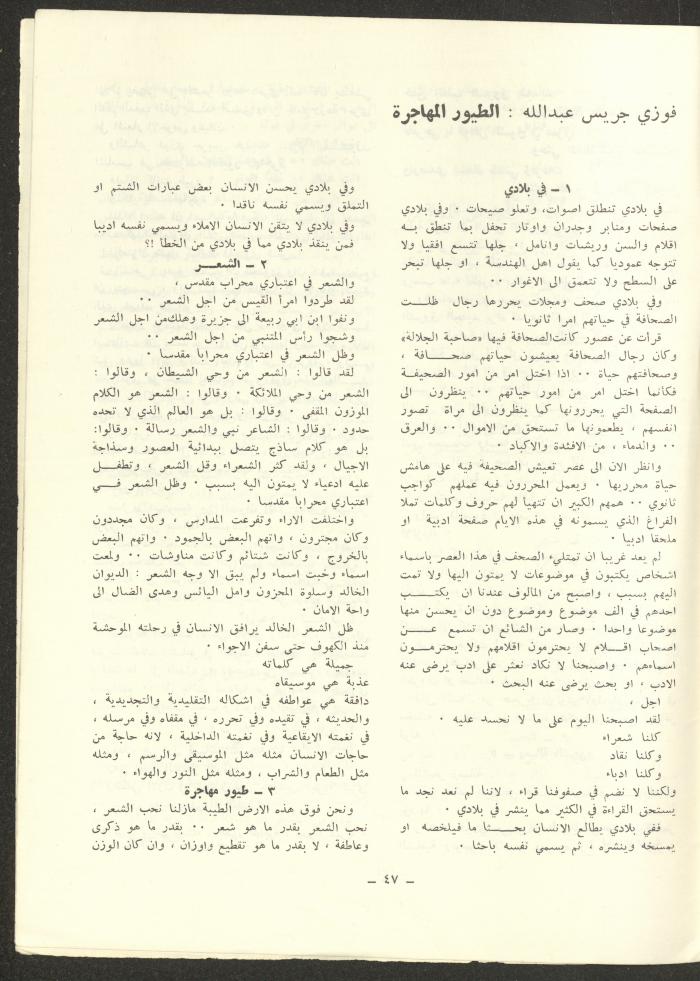 فوزي جريس عبدالله : الطيور المهاجرة
١ - في بلادي
في بلادي تنطلق اصوات، وتعلو صيحات ٠ وفي بلادي
صفحات ومنابر وجدران واوتار تحفل بما تنطق به
اقلام والسن وريشات وانامل ، جلها تتسع افقيا ولا
تتوجه عموديا كما يقول اهل الهندسة ، او جلها تبحر
على السطح ولا تتعمق الى الاغوار ٠٠
وفي بلادي صحف ومجلات يحررها رجال ظلت
الصحافة في حياتهم امرا ثانويا ٠
قرأت عن عصور كانت الصحافة فيها «صاحبة الجلالة»
وكان رجال الصحافة يعيشون حياتهم صحافة ،
وصحافتهم حياة ٠٠ اذا اختل امر من امور الصحيفة
فكأنما اختل امر من امور حياتهم ٠٠ ينظرون الى
الصفحة التي يحررونها كما ينظرون الى مراة تصور
انفسهم ، يطعمونها ما تستحق من الاموال ٠٠ والعرق
٠٠ والدماء ، من الافئدة والاكباد ٠
وانظر الان الى عصر تعيش الصحيفة فيه على هامش
حياة محرريها ٠ ويعمل المحررون فيه عملهم كواجب
ثانوي ٠٠ همهم الكبير ان تتهيأ لهم حروف وكلمات تملا
الفراغ الذي يسمونه في هذه الايام صفحة ادبية او
ملحقا ادبيا ٠
لم يعد غريبا ان تمتليء الصحف في هذا العصر باسماء
اشخاص يكتبون في موضوعات لا يمتون اليها ولا تمت
اليهم بسبب ، واصبح من المالوف عندنا ان يكتب
احدهم في الف موضوع وموضوع دون ان يحسن منها
موضوعا واحدا ٠ وصار من الشائع ان تسمع عن
اصحاب اقلام لا يحترمون اقلامهم ولا يحترمون
اسماءهم ٠ واصبحنا لا نكاد نعثر على ادب يرضى عنه
الادب ، او بحث يرضى عنه البحث ٠
اجل ،
لقد اصبحنا اليوم على ما لا نحسد عليه ٠
كلنا شعراء
وكلنا نقاد
وكلنا ادباء
ولكننا لا نضم في صفوفنا قراء ، لاننا لم نعد نجد ما
يستحق القراءة في الكثير مما ينشر في بلادي ٠
ففي بلادي يطالع الانسان بحثا ما فيلخصه او
يمسخه وينشره ، ثم يسمي نفسه باحثا ٠
وفي بلادي يحسن الانسان بعض عبارات الشتم او
التملق ويسمي نفسه ناقدا ٠
وفي بلادي لا يتقن الانسان الاملاء ويسمي نفسه اديبا
فمن ينقذ بلادي مما في بلادي من الخطأ !؟
٢ - الشعر
والشعر في اعتباري محراب مقدس ،
لقد طردوا امرأ القيس من اجل الشعر ٠٠
ونفوا ابن ابي ربيعة الى جزيرة وهلك من اجل الشعر
وشجوا رأس المتنبي من اجل الشعر ٠٠
وظل الشعر في اعتباري محرابا مقدسا ٠
لقد قالوا : الشعر من وحي الشيطان ، وقالوا :
الشعر من وحي الملائكة ٠ وقالوا : الشعر هو الكلام
الموزون المقفى ٠ وقالوا : بل هو العالم الذي لا تحده
حدود ٠ وقالوا : الشاعر نبي والشعر رسالة ٠ وقالوا:
بل هو كلام ساذج يتصل ببدائية العصور وسذاجة
الاجيال ، ولقد كثر الشعراء وقل الشعر ، وتطفل
عليه ادعياء لا يمتون اليه بسبب ٠ وظل الشعر في
اعتباري محرابا مقدسا ٠
واختلفت الاراء وتفرعت المدارس ، وكان مجددون
وكان مجترون ، واتهم البعض بالجمود ٠ واتهم البعض
بالخروج ، وكانت شتائم وكانت مناوشات ٠٠ ولمعت
اسماء وخبت اسماء ولم يبق الا وجه الشعر : الديوان
الخالد وسلوة المحزون وامل اليائس وهدى الضال الى
واحة الامان ٠
ظل الشعر الخالد يرافق الانسان في رحلته الموحشة
منذ الكهوف حتى سفن الاجواء ٠
جميلة هي كلماته
عذبة هي موسيقاه
دافقة هي عواطفه في اشكاله التقليدية والتجديدية ،
والحديثه ، في تقيده وفي تحرره ، في مقفاه وفي مرسله ،
في نغمته الايقاعية وفي نغمته الداخلية ، لانه حاجة من
حاجات الانسان مثله مثل الموسيقى والرسم ، ومثله
مثل الطعام والشراب ، ومثله مثل النور والهواء ٠
٣ - طيور مهاجرة
ونحن فوق هذه الارض الطيبة مازلنا نحب الشعر ،
نحب الشعر بقدر ما هو شعر ٠٠ بقدر ما هو ذكرى
وعاطفة ، لا بقدر ما هو تقطيع واوزان ، وان كان الوزن
- ٤٧ -